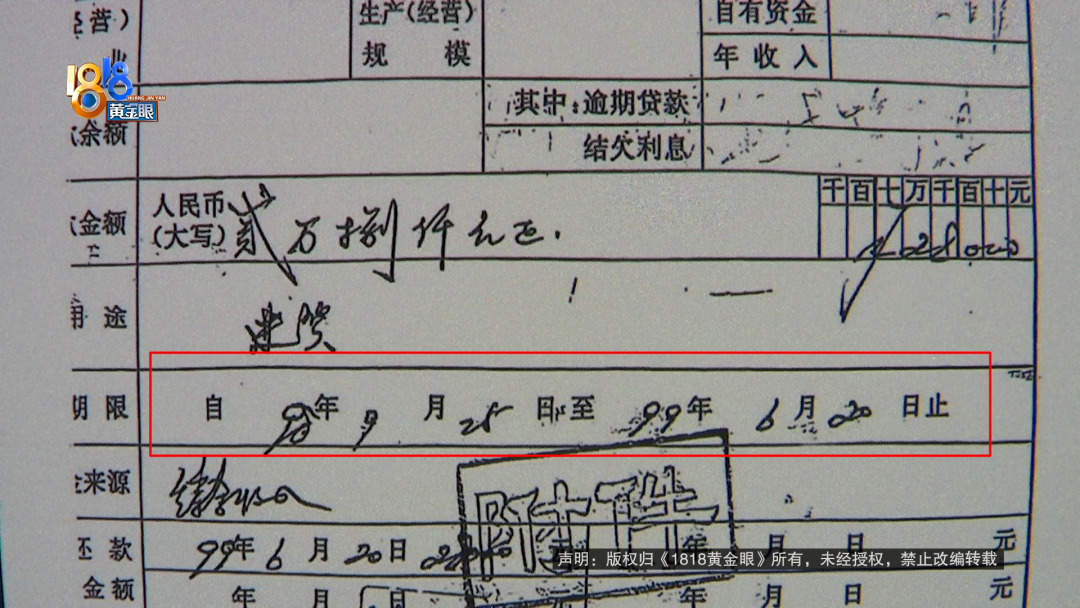 经营）
生产(经营)
规 模
自有资金
年收入
1818
HUANG JIN YAN
黄金眼
余额
其中:逾期贷款
结欠利息
金额
人民币
(大写)
贰万捌仟元正.
千百十万千百十元
2028000
用途
进货
期限 自 98年9月25日至99年6月20日止
来源
附件
还款 99年6月20日
年 月 日 元
金额 年 月 日 元 年 月 日 元
声明：版权归《1818黄金眼》所有，未经授权，禁止改编转载